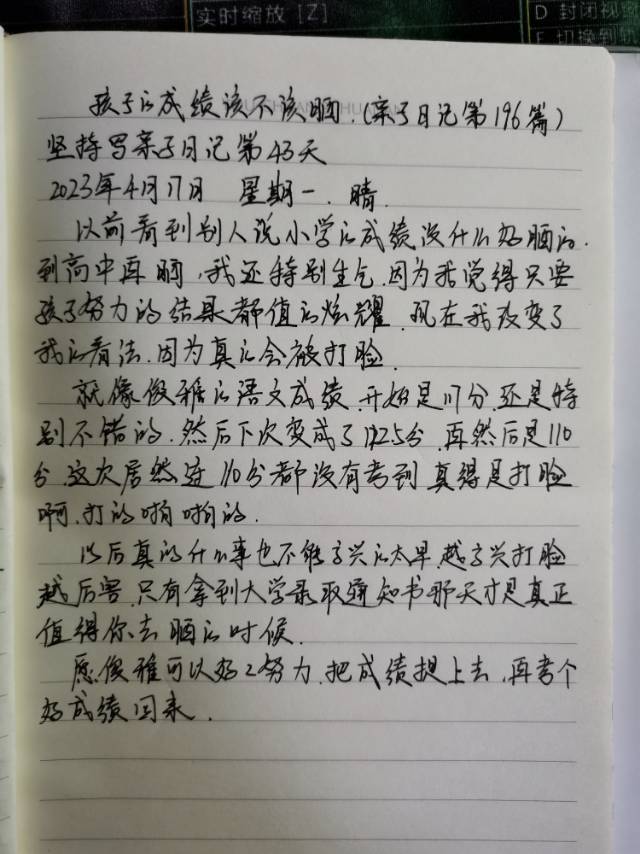 实时缩放 [Z]
D 封闭视
E 切换到
孩子的成绩该不该晒.(亲子日记第196篇)
坚持写亲子日记第43天
2023年4月17日 星期一. 晴.
以前看到别人说小学的成绩没什么好晒的.
到高中再晒,我还特别生气.因为我觉得只要
孩子努力的结果都值的炫耀.现在我改变了
我的看法.因为真的会被打脸.
就像俊雅的语文成绩.开始是117分.还是特
别不错的.然后下次变成了112.5分.再然后是110
分.这次居然连110分都没有考到 真得是打脸
啊.打的啪啪的.
以后真的什么事也不能高兴的太早.越高兴打脸
越厉害.只有拿到大学录取通知书那天才是真正
值得你去晒的时候.
愿俊雅可以好好努力.把成绩提上去,再考个
好成绩回来.